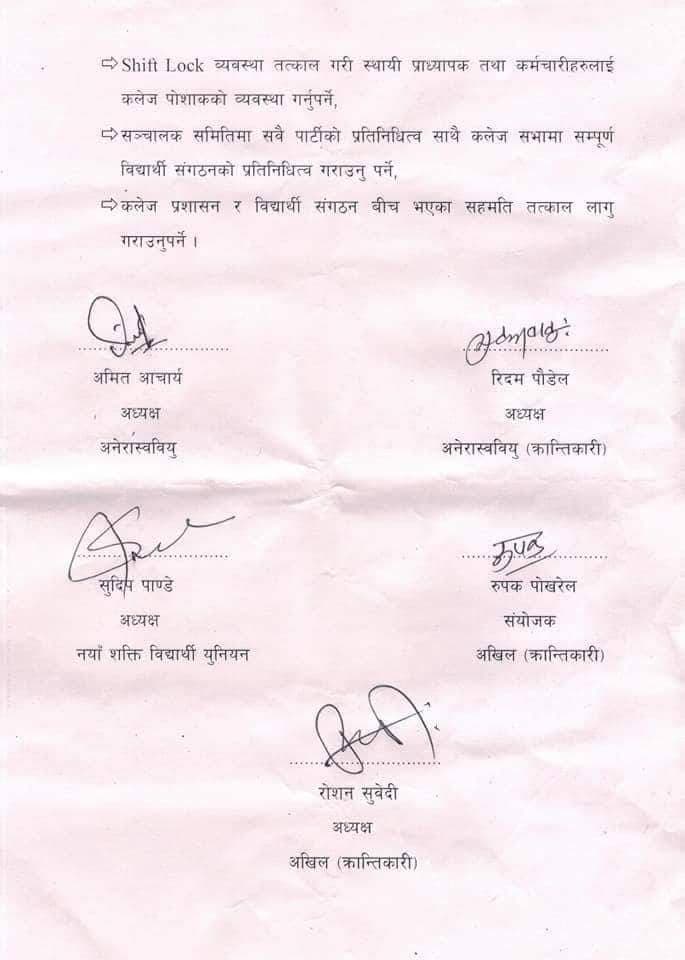 ⇨ Shift Lock व्यवस्था तत्काल गरी स्थायी प्राध्यापक तथा कर्मचारीहरुलाई
कलेज पोशाकको व्यवस्था गर्नुपर्ने,
⇨ सञ्चालक समितिमा सवै पार्टीको प्रतिनिधित्व साथै कलेज सभामा सम्पूर्ण
विद्यार्थी संगठनको प्रतिनिधित्व गराउनु पर्ने,
⇨ कलेज प्रशासन र विद्यार्थी संगठन बीच भएका सहमति तत्काल लागु
गराउनुपर्ने ।
अमित आचार्य
अध्यक्ष
अनेरास्ववियु
रिदम पौडेल
अध्यक्ष
अनेरास्ववियु (क्रान्तिकारी)
सुदिप पाण्डे
अध्यक्ष
नयाँ शक्ति विद्यार्थी युनियन
रुपक
रुपक पोखरेल
संयोजक
अखिल (क्रान्तिकारी)
रोशन सुवेदी
अध्यक्ष
अखिल (क्रान्तिकारी)